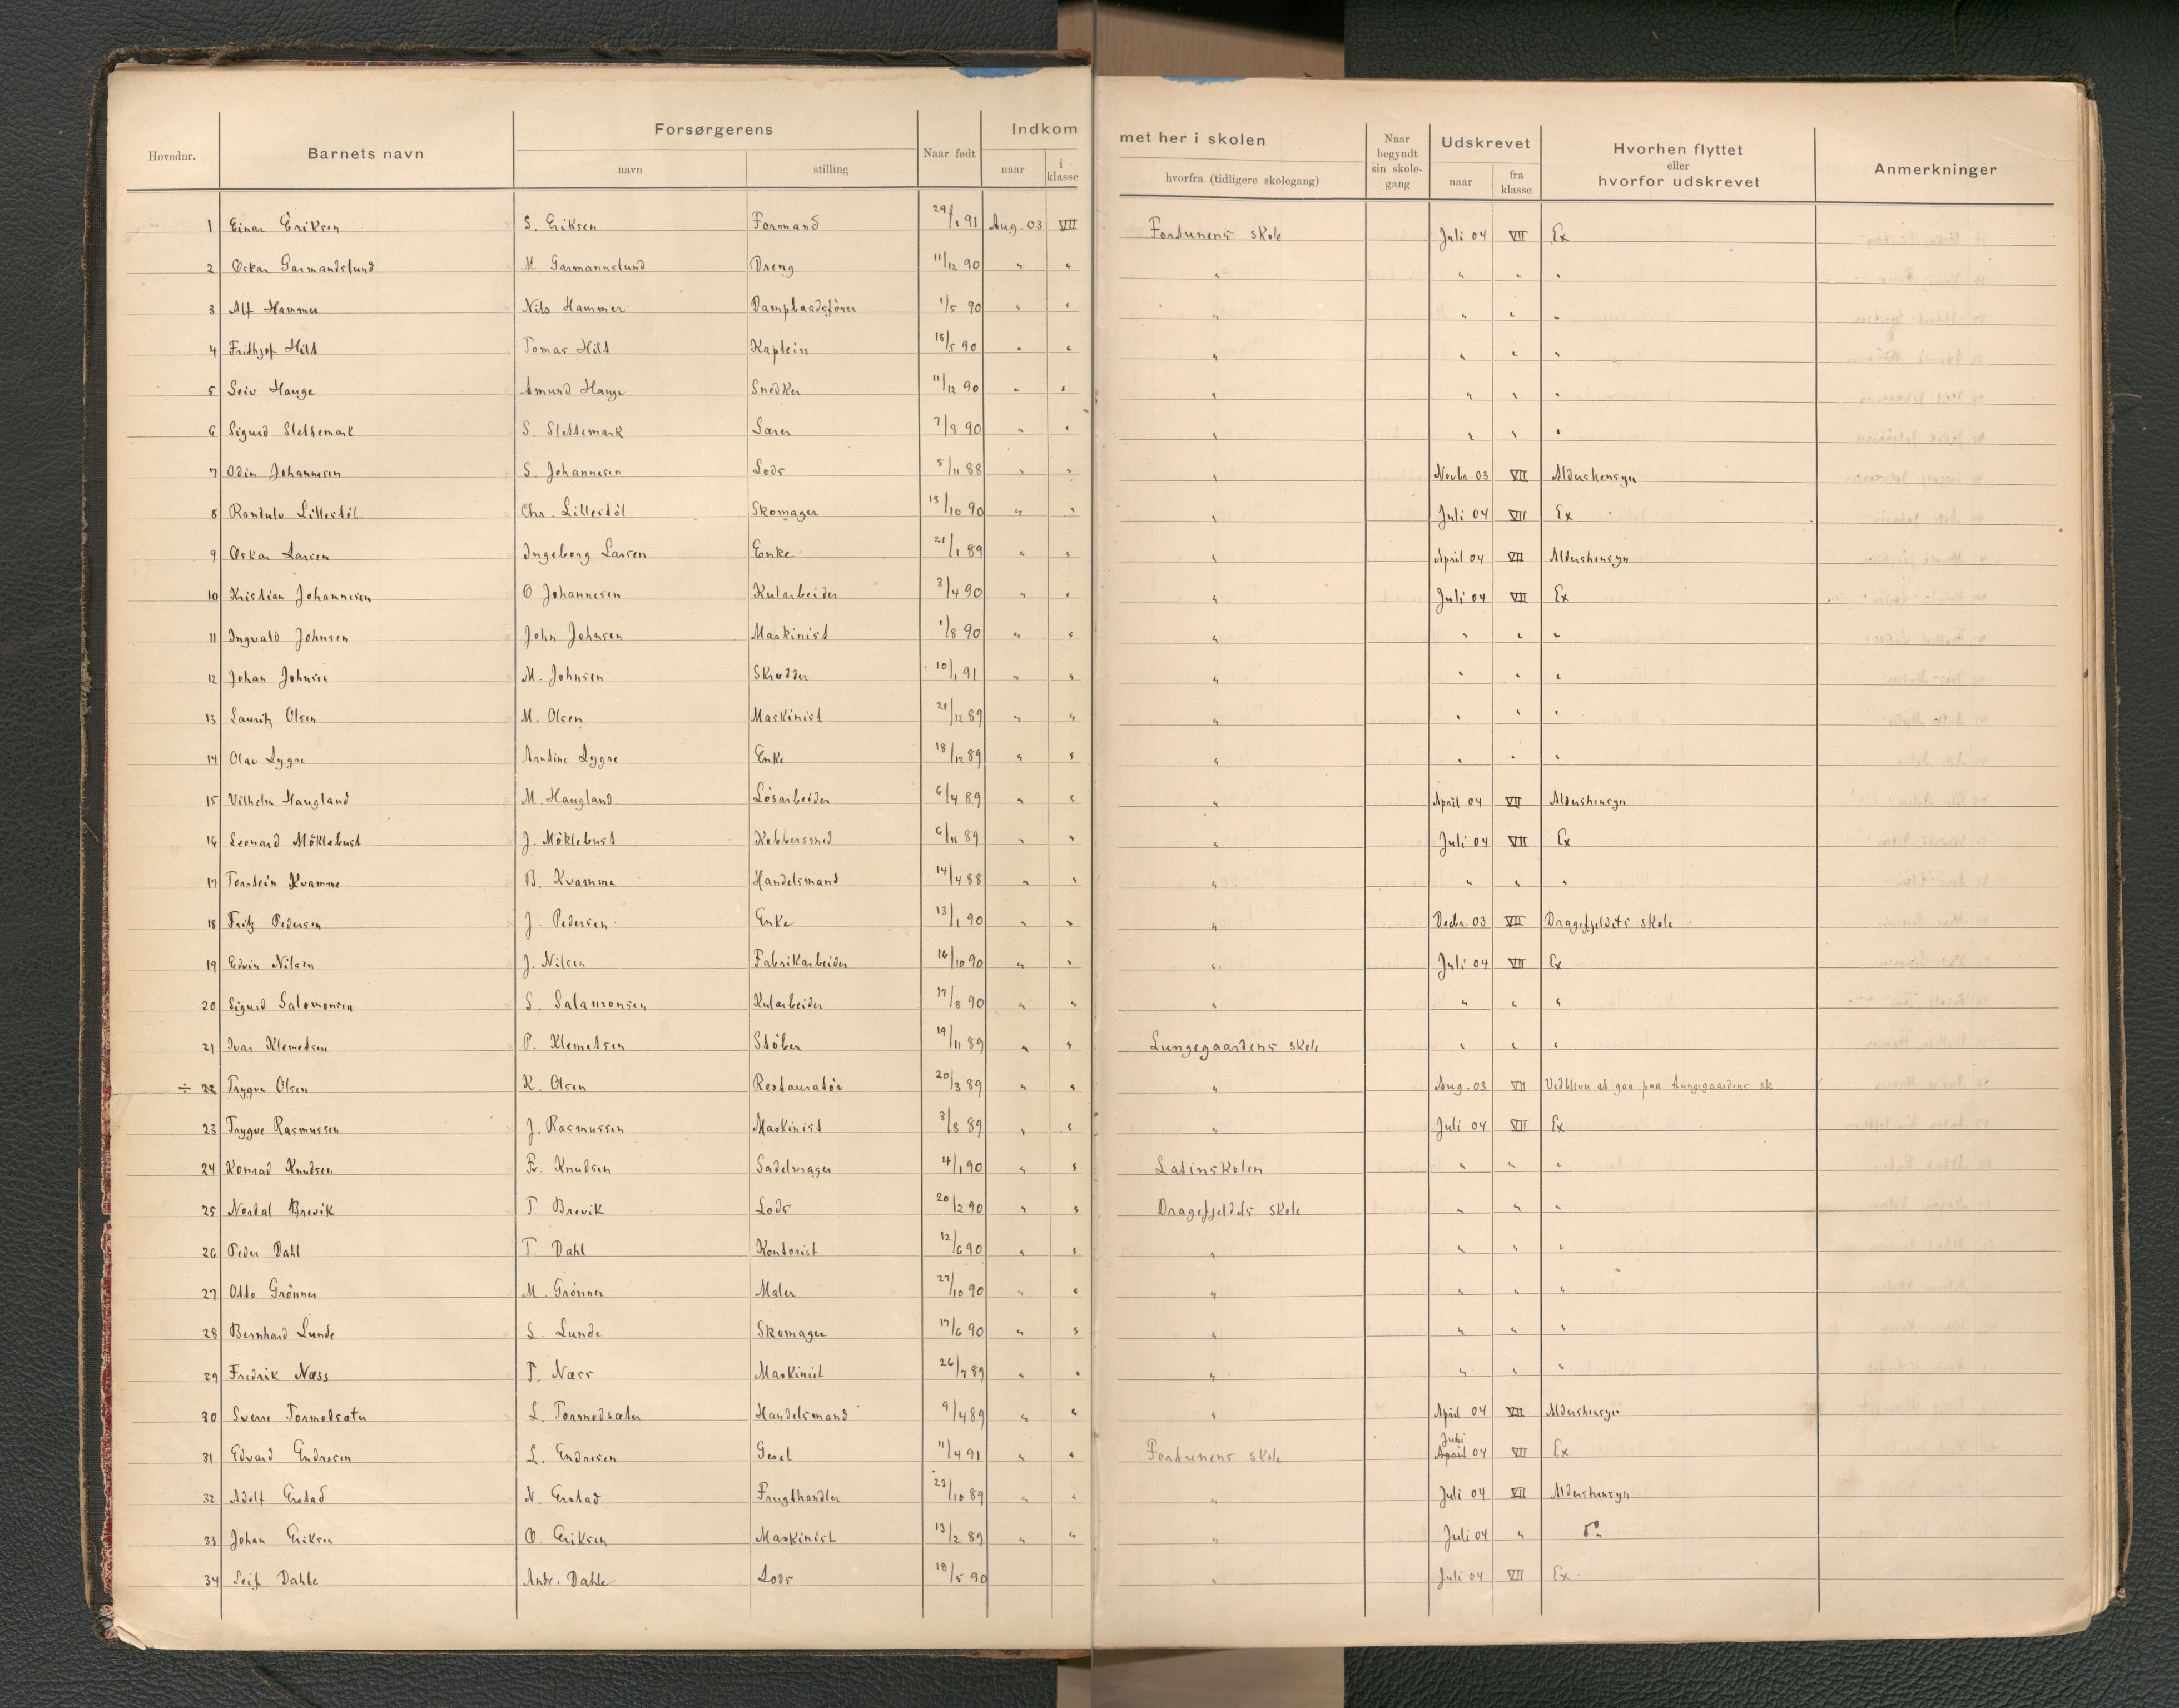 Hovednr. Barnets navn Forsørgerens Naar født Indkommet her i skolen Naar begyndt sin skolegang Udskrevet Hvorhen flyttet eller hvorfor udskrevet Anmerkninger
navn stilling naar i klasse hvorfra (tidligere skolegang) naar fra klasse
1 Einar Eriksen S. Eriksen Formand 29/1 91 Aug. 03 VII Fortunens skole Juli 04 VII Ex
2 Oskar Garmandslund M. Garmannslund Dreng 11/12 90 " " " " " "
3 Alf Hammer Nils Hammer Dampbaadsfører 1/5 90 " " " " " "
4 Frithjof Hilt Tomas Hilt Kaptein 18/5 90 " " " " " "
5 Leiv Hauge Amund Hauge Snedker 11/12 90 " " " " " "
6 Sigurd Slettemark S. Slettemark Lærer 7/8 90 " " " " " "
7 Odin Johannesen S. Johannesen Lods 5/11 88 " " " Novbr. 03 VII Aldershensyn
8 Randulv Lillestöl Chr. Lillestöl Skomager 13/10 90 " " " Juli 04 VII Ex
9 Oskar Larsen Ingeborg Larsen Enke 21/1 89 " " " April 04 VII Aldershensyn
10 Kristian Johannesen O Johannesen Kularbeider 3/4 90 " " " Juli 04 VII Ex
11 Ingvald Johnsen John Johnsen Maskinist 1/8 90 " " " " " "
12 Johan Johnsen M. Johnsen Skrædder 10/1 91 " " " " " "
13 Lauritz Olsen M. Olsen Maskinist 21/12 89 " " " " " "
14 Olav Lygre Arntine Lygre Enke 18/12 89 " " " " " "
15 Vilhelm Haugland M. Haugland Lösarbeider 6/4 89 " " " April 04 VII Aldershensyn
16 Leonard Möklebust J. Möklebust Kobbersmed 6/11 89 " " " Juli 04 VII Ex
17 Torstein Kvamme B. Kvamme Handelsmand 14/4 88 " " " " " "
18 Fritz Pedersen J. Pedersen Enke 13/1 90 " " " Decbr. 03 VII Dragefjeldets skole
19 Edvin Nilsen J. Nilsen Fabrikarbeider 16/10 90 " " " Juli 04 VII Ex
20 Sigurd Salomonsen S. Salamonsen Kularbeider 17/8 90 " " " " " "
21 Ivar Klemetsen P. Klemetsen Stöber 19/11 89 " " Lungegaardens skole " " "
÷ 22 Trygve Olsen K. Olsen Restauratör 20/3 89 " " " Aug. 03 VII Vedblever at gaa paa Lungegaardens sk.
23 Trygve Rasmussen J. Rasmussen Maskinist 3/8 89 " " " Juli 04 VII Ex
24 Konrad Knudsen Fr. Knudsen Sadelmager 4/1 90 " " Latinskolen " " "
25 Nordal Brevik T. Brevik Lods 20/2 90 " " Dragefjeldets skole " " "
26 Peder Dahl T. Dahl Kontorist 12/6 90 " " " " " "
27 Otto Grönner M. Grönner Maler 27/10 90 " " " " " "
28 Bernhard Lunde L. Lunde Skomager 17/6 90 " " " " " "
29 Fredrik Næss T. Næss Maskinist 26/7 89 " " " " " "
30 Sverre Tormodsæter L. Tormodsæter Handelsmand 9/4 89 " " " April 04 VII Aldershensyn
Juli
31 Edvard Endresen L. Endresen Gesel 11/4 91 " " Fortunens skole April 04 VII Ex
32 Adolf Erstad N. Erstad Frugthandler 23/10 89 " " " Juli 04 VII Aldershensyn
33 Johan Eriksen O. Eriksen Maskinist 13/2 89 " " " Juli 04 "
34 Leif Dahle Andr. Dahle Lods 18/5 90 " Juli 04 VII Ex